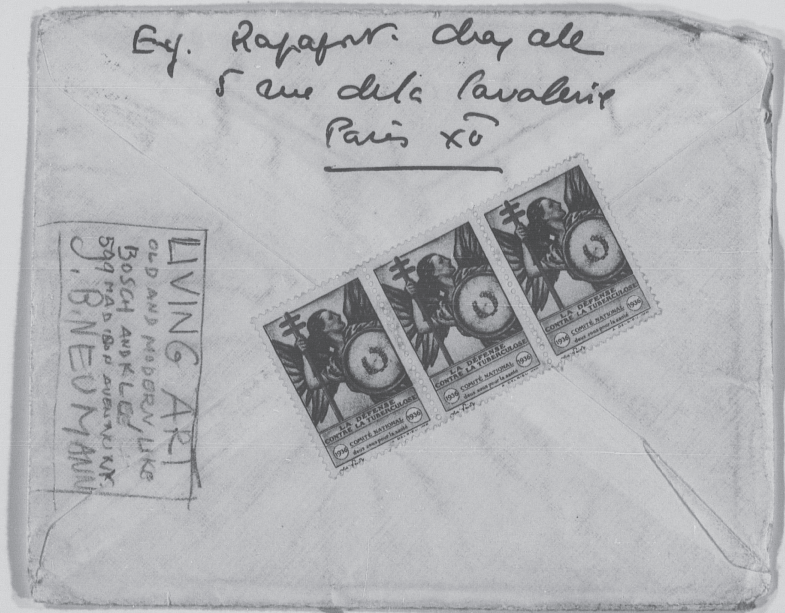 Ey. Rapaport.
5 rue de la Cavalerie
Paris XV
LIVING ART
OLD AND MODERN LIKE
BOSCH AND KLEE
509 MADISON AVENUE N.Y.
J. B. NEUMANN
LA DÉFENSE
CONTRE LA TUBERCULOSE
1936 COMITÉ NATIONAL 1936
deux sous pour la santé
LA DÉFENSE
CONTRE LA TUBERCULOSE
1936 COMITÉ NATIONAL 1936
deux sous pour la santé
LA DÉFENSE
CONTRE LA TUBERCULOSE
1936 COMITÉ NATIONAL 1936
deux sous pour la santé